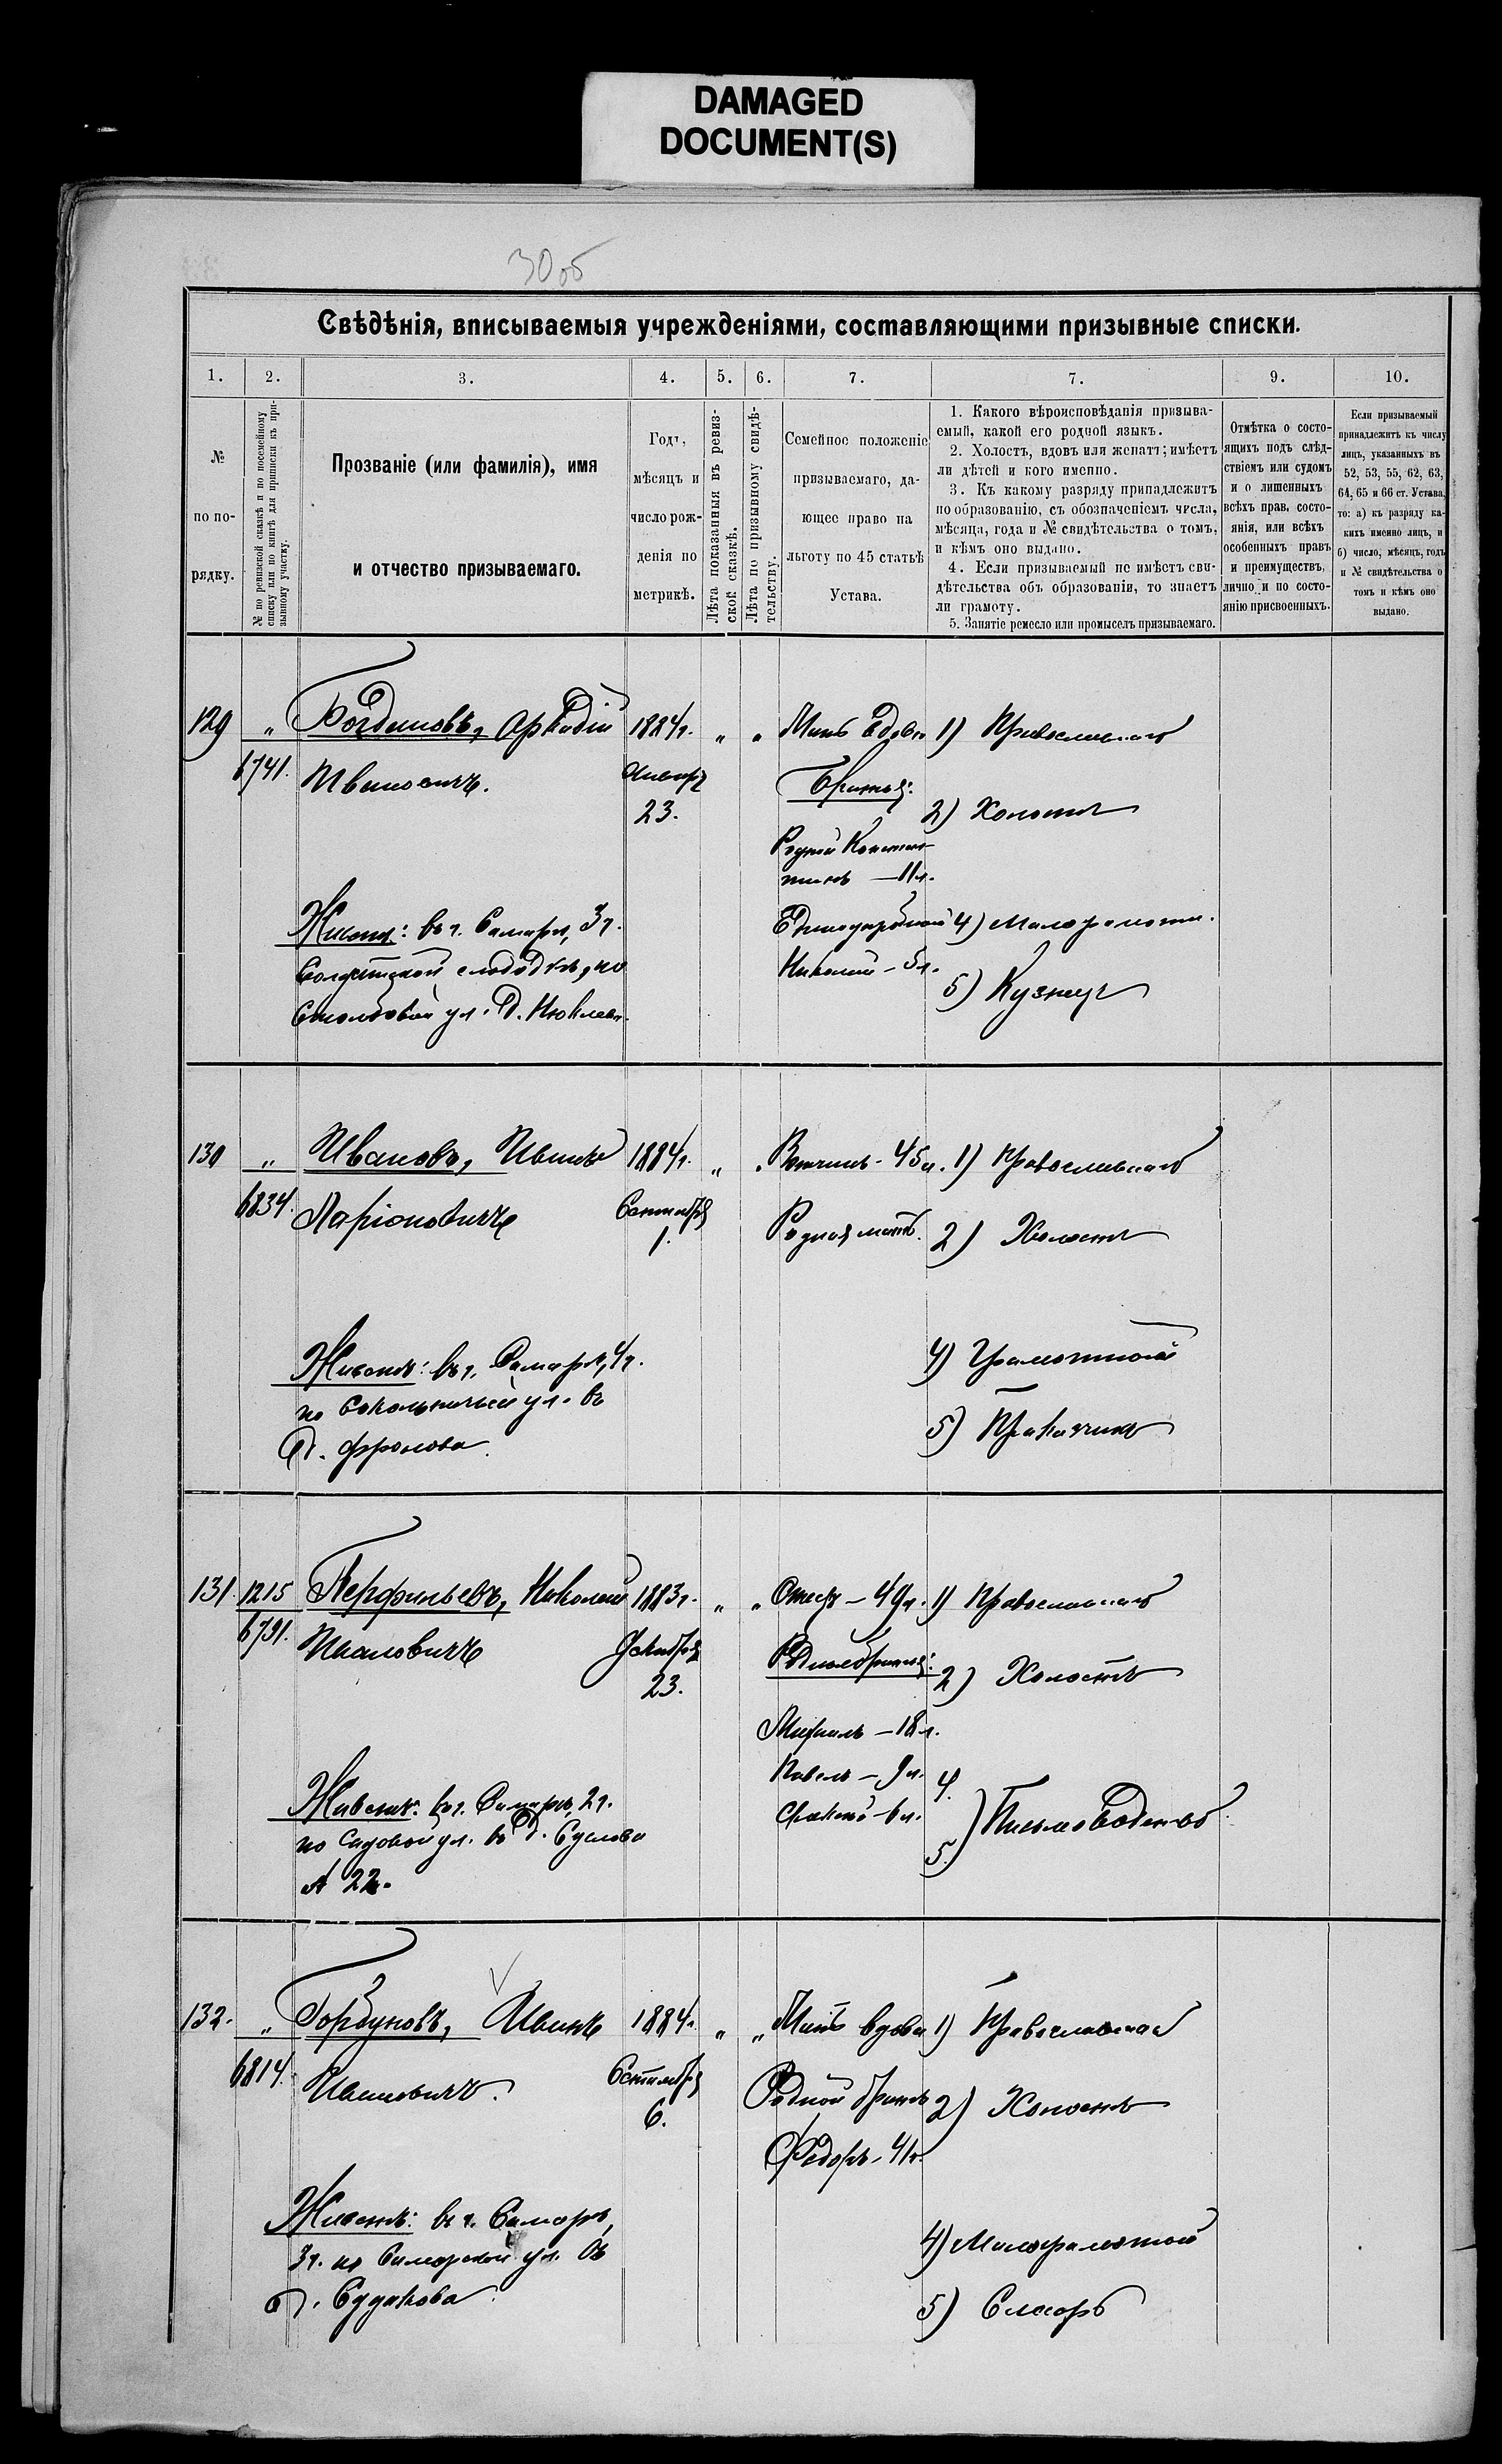 DAMAGED
DOCUMENT(S)
30об
Свѣдѣнія, вписываемыя учрежденіями, составляющими призывные списки.
1. 2. 3. 4. 5. 6. 7. 7. 9. 10.
№
по по-
рядку.
№ по ревизской сказкѣ и по посемейному
списку или по книгѣ для приписки къ при-
зывному участку.
Прозваніе (или фамилія), имя
и отчество призываемаго.
Годъ,
мѣсяцъ и
число рож-
денія по
метрикѣ.
Лѣта показанныя въ ревиз-
ской сказкѣ.
Лѣта по призывному свидѣ-
тельству.
Семейное положеніе
призываемаго, да-
ющее право на
льготу по 45 статьѣ
Устава.
1. Какого вѣроисповѣданія призыва-
емый, какой его родной языкъ.
2. Холостъ, вдовъ или женатъ; имѣетъ
ли дѣтей и кого именно.
3. Къ какому разряду принадлежитъ
по образованію, съ обозначеніемъ числа,
мѣсяца, года и № свидѣтельства о томъ,
и кѣмъ оно выдано.
4. Если призываемый не имѣетъ сви-
дѣтельства объ образованіи, то знаетъ
ли грамоту.
5. Занятіе ремесло или промыселъ призываемаго.
Отмѣтка о состо-
ящихъ подъ слѣд-
ствіемъ или судомъ
и о лишенныхъ
всѣхъ прав. состо-
янія, или всѣхъ
особенныхъ правъ
и преимуществъ,
лично и по состо-
янію присвоенныхъ.
Если призываемый
принадлежитъ къ числу
лицъ, указанныхъ въ
52, 53, 55, 62, 63,
64, 65 и 66 ст. Устава,
то: а) къ разряду ка-
кихъ именно лицъ, и
б) число, мѣсяцъ, годъ
и № свидѣтельства о
томъ и кѣмъ оно
выдано.
129 " Богдановъ, Аркадій 1884г. " " Мать вдова 1) Православнаго
6741. Ивановичъ. Января Братья:
23. 2) Холостъ
Родной Констан-
тинъ — 11л.
Живетъ: въ г. Самарѣ, 3ч. Единоутробный 4) Малограмотн.
Солдатской слободкѣ, по Николай - 5л.
Столбовой ул. д. 5) Кузнецъ
130 " Ивановъ, Иванъ 1884г. " " Вотчимъ - 45л. 1) Православнаго
6834. Ларіоновичъ Сентября Родная мать. 2) Холостъ
1.
Живетъ: въ г. Самарѣ, 4ч. 4) Грамотный
по Сокольничьей ул. въ
д. Фролова 5) Приказчикъ
131. 1215 Перфильевъ, Николай 1883г. " " Отецъ - 49л. 1) Православнаго
6791. Октября Родные братья: 2) Холостъ
23.
Михаилъ — 18л.
Живетъ: въ г. Самарѣ, 2ч. Павелъ — 9л. 4.
по Садовой ул. въ д. Суслова — 6л. 5.) Письмоводство
№ 22.
132. " Горбуновъ, Иванъ 1884г. " " Мать вдова 1) Православнаго
6814. Ивановичъ. Сентября Родной братъ 2) Холостъ
6. Федоръ - 4л.
Живетъ: въ г. Самарѣ,
3ч. по Самарской ул. въ 4) Малограмотный
д. Судакова. 5) Слесарь